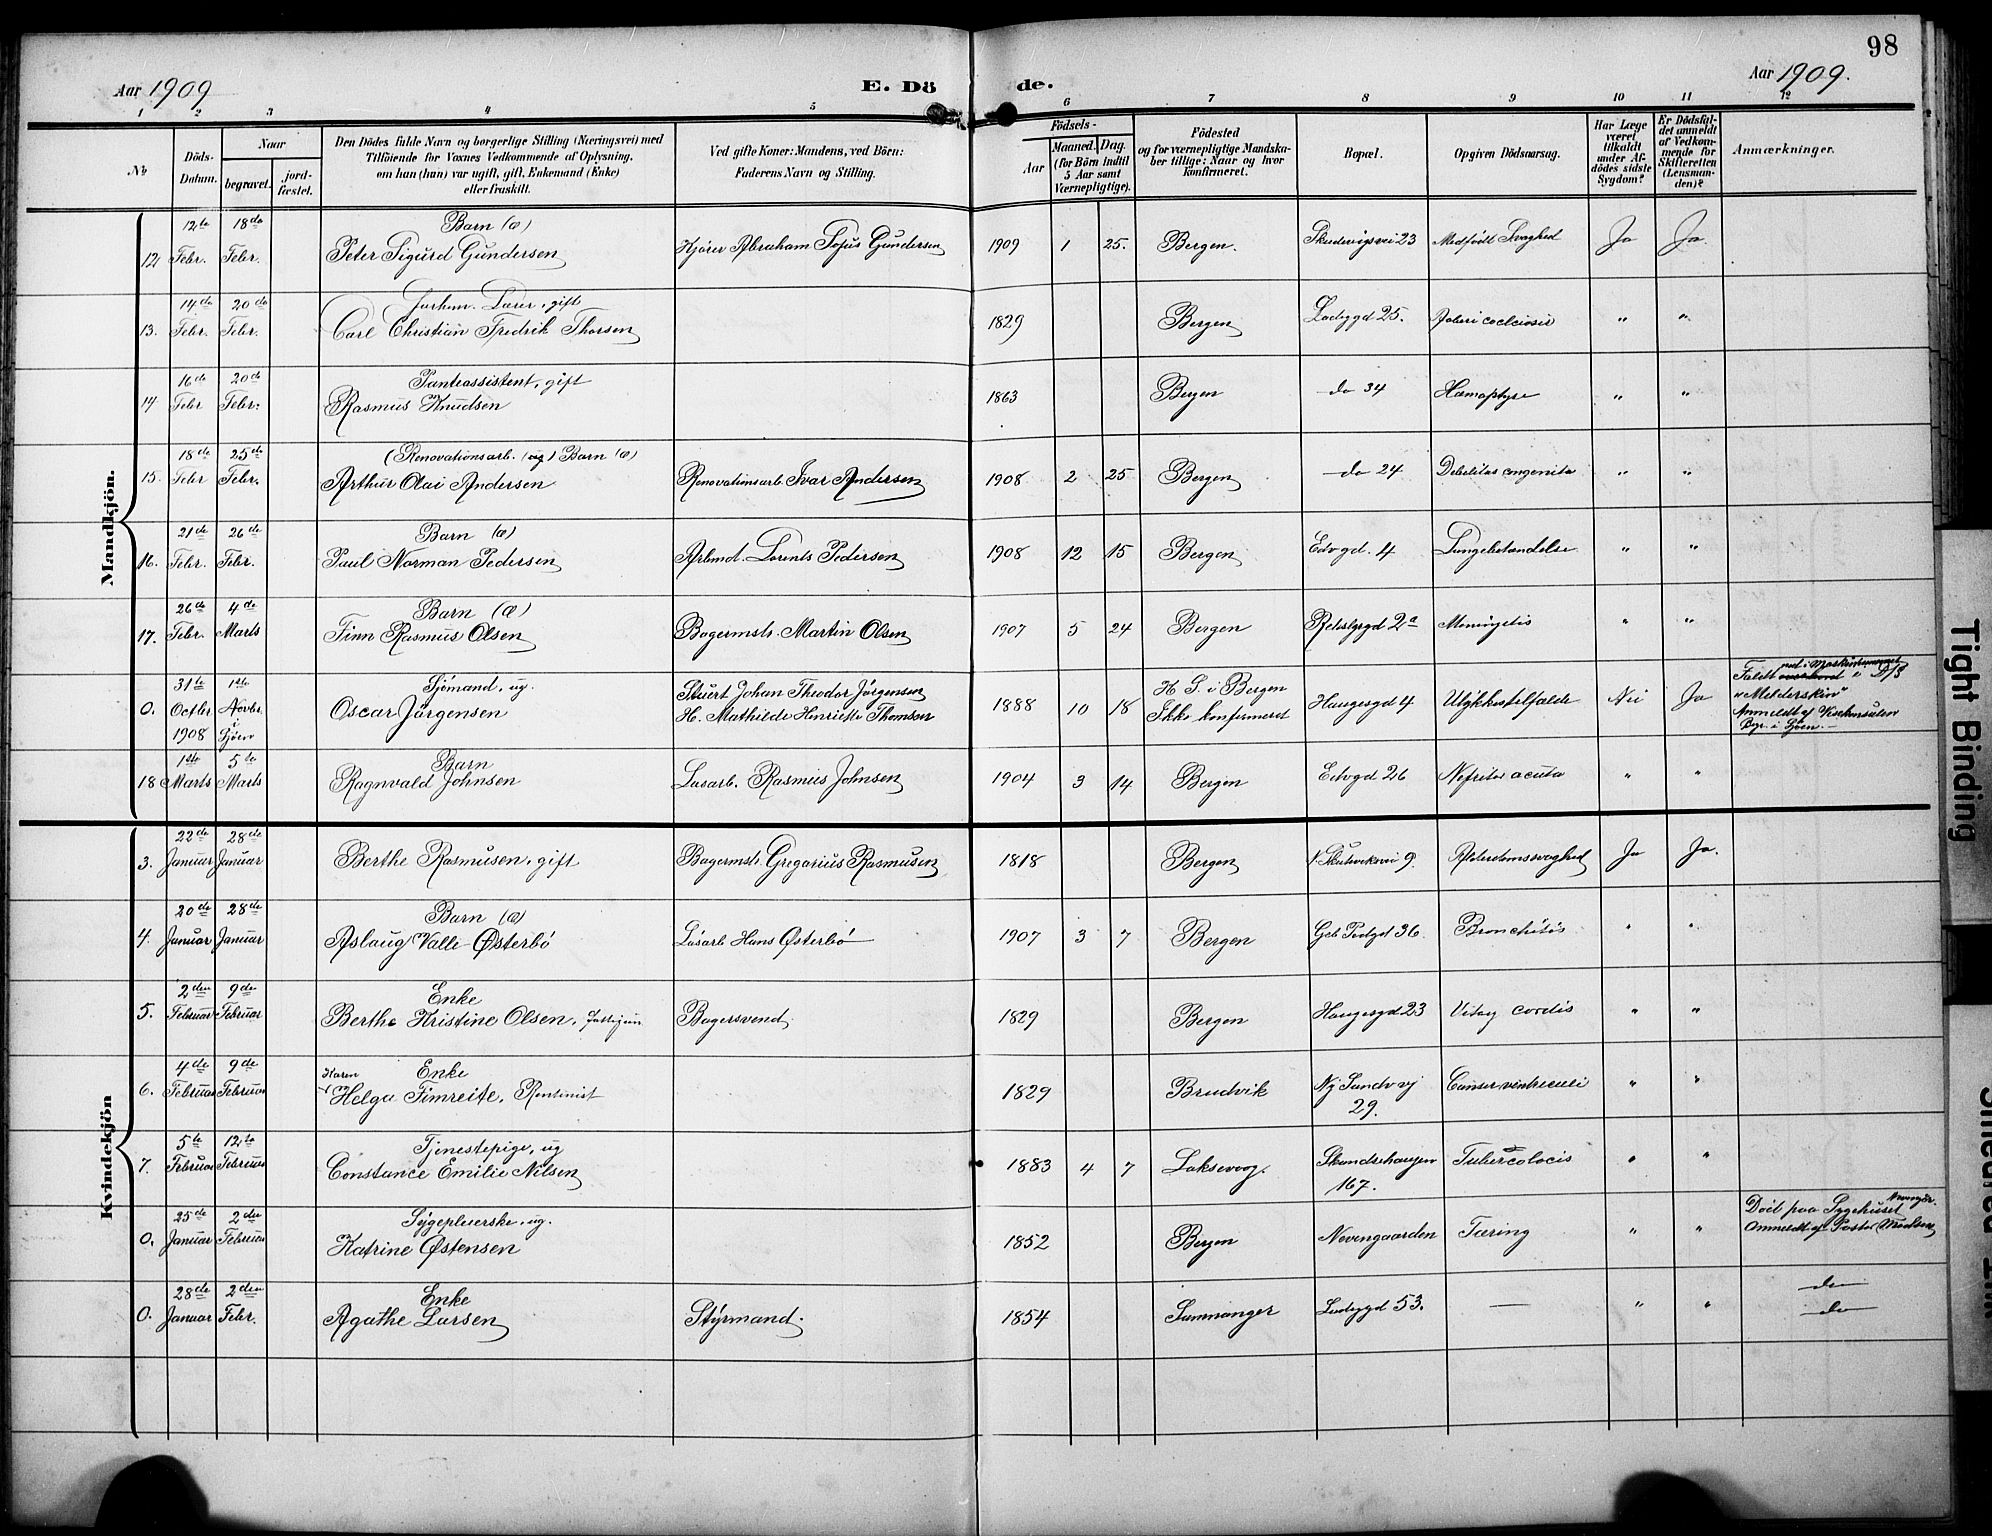 98
Aar 1909
E. Dö
de.
Aar 1909.
1 2 3 4 5 6 7 8 9 10 11 12
№
Döds-
Datum.
Naar
begravet.
jord-
fæstet.
Den Dödes fulde Navn og borgerlige Stilling (Næringsvei) med
Tilföiende for Voxnes Vedkommende af Oplysning,
om han (hun) var ugift, gift, Enkemand (Enke)
eller fraskilt.
Ved gifte Koner: Mandens, ved Börn:
Faderens Navn og Stilling.
Födsels-
Aar
Maaned. Dag.
(for Börn indtil
5 Aar samt
Værnepligtige).
Födested
og for værnepligtige Mandska-
ber tillige: Naar og hvor
konfirmeret.
Bopæl.
Opgiven Dödsaarsag.
Har Læge
været
tilkaldt
under Af-
dödes sidste
Sygdom?
Er Dödsfal-
det anmeldt
af Vedkom-
mende for
Skifteretten
(Lensman-
den)?
Anmærkninger.
Mandkjön.
12te 18de Barn (æ)
12 Febr. Febr. Peter Sigurd Gundersen Kjører Abraham Gundersen 1909 1 25. Bergen. 23 Medfødt Svaghed Ja Ja
14de 20de gift
13. Febr. Febr. Carl Christian Fredrik Thorsen 1829 Bergen 25. " "
16de 20de Panteassistent, gift
14 Febr Febr. Rasmus Knudsen 1863 Bergen do 34 Hæmoptyse " "
18de 25de (Renovationsarb. (ug) Barn (æ)
15. Febr Febr. Arthur Olai Andersen Renovationsarb Ivar Andersen 1908 2 25 Bergen do 24 Debilitas congenita " "
21de 26de Barn (æ)
16. Febr. Febr. Paul Norman Pedersen Arbmd. Lorents Pedersen 1908 12 15 Bergen Edvgd. 4 Lungebetændelse " "
26de 4de Barn (æ)
17. Febr. Marts Finn Rasmus Olsen Bagermstr. Martin Olsen 1907 5 24 Bergen 2a Meningitis " "
31te 1ste Sjömand, ug.
0. Octbr Novbr Oscar Jörgensen
1908 Sjöen
Stuert Johan Theodor Jörgensen
H. Mathilde Henriette Thomsen
1888 10 18
H S. i Bergen
Ikke konfirmeret
Haugesgd 4 Ulykkestilfælde Nei Ja
Faldt overbord D/S
"Melderskin"
Anmeldt af Visekonsulen
i Sjöen.
1ste 5te Barn
18 Marts Marts Ragnvald Johnsen Løsarb. Rasmus Johnsen 1904 3 14 Bergen Edvgd 26 Nefritis acuta " "
Kvindekjön
22de 28de
3. Januar Januar Berthe Rasmusen, gift Bagermstr. Gregorius Rasmusen 1818 Bergen 9. Alderdomssvaghed Ja Ja.
20de 28de Barn (æ)
4. Januar Januar Aslaug Valle Østerbö Løsarb Hans Østerbö 1907 3 7 Bergen 36. Bronchitis " "
2den 9de Enke
5. Februar Februar Berthe Kristine Olsen, Bagersvend 1829 Bergen Haugesgd 23 Vitug cordis " "
4de 9de Karen Enke
6. Februar Februar Helga Timreite, Rentenist 1829 Bruvik Ny Sandv vj
29.
Canser ventriculi " "
5te 12te Tjenestepige, ug
7. Februar Februar Constance Emilie Nilsen 1883 4 7 Laksevaag. Skandsehaugen
167.
Tuberculocis " "
25de 2den Sygepleierske, ug.
0. Januar Februar Katrine Østensen 1852 Bergen Nevengaarden Tæring " "
Död paa Sygehuset
Anmeldt af Pastor
28de 2den Enke
0. Januar Febr. Agathe Larsen Styrmand. 1854 Samnanger 53. — " "
do
do
Tight Binding
Smeared Ink